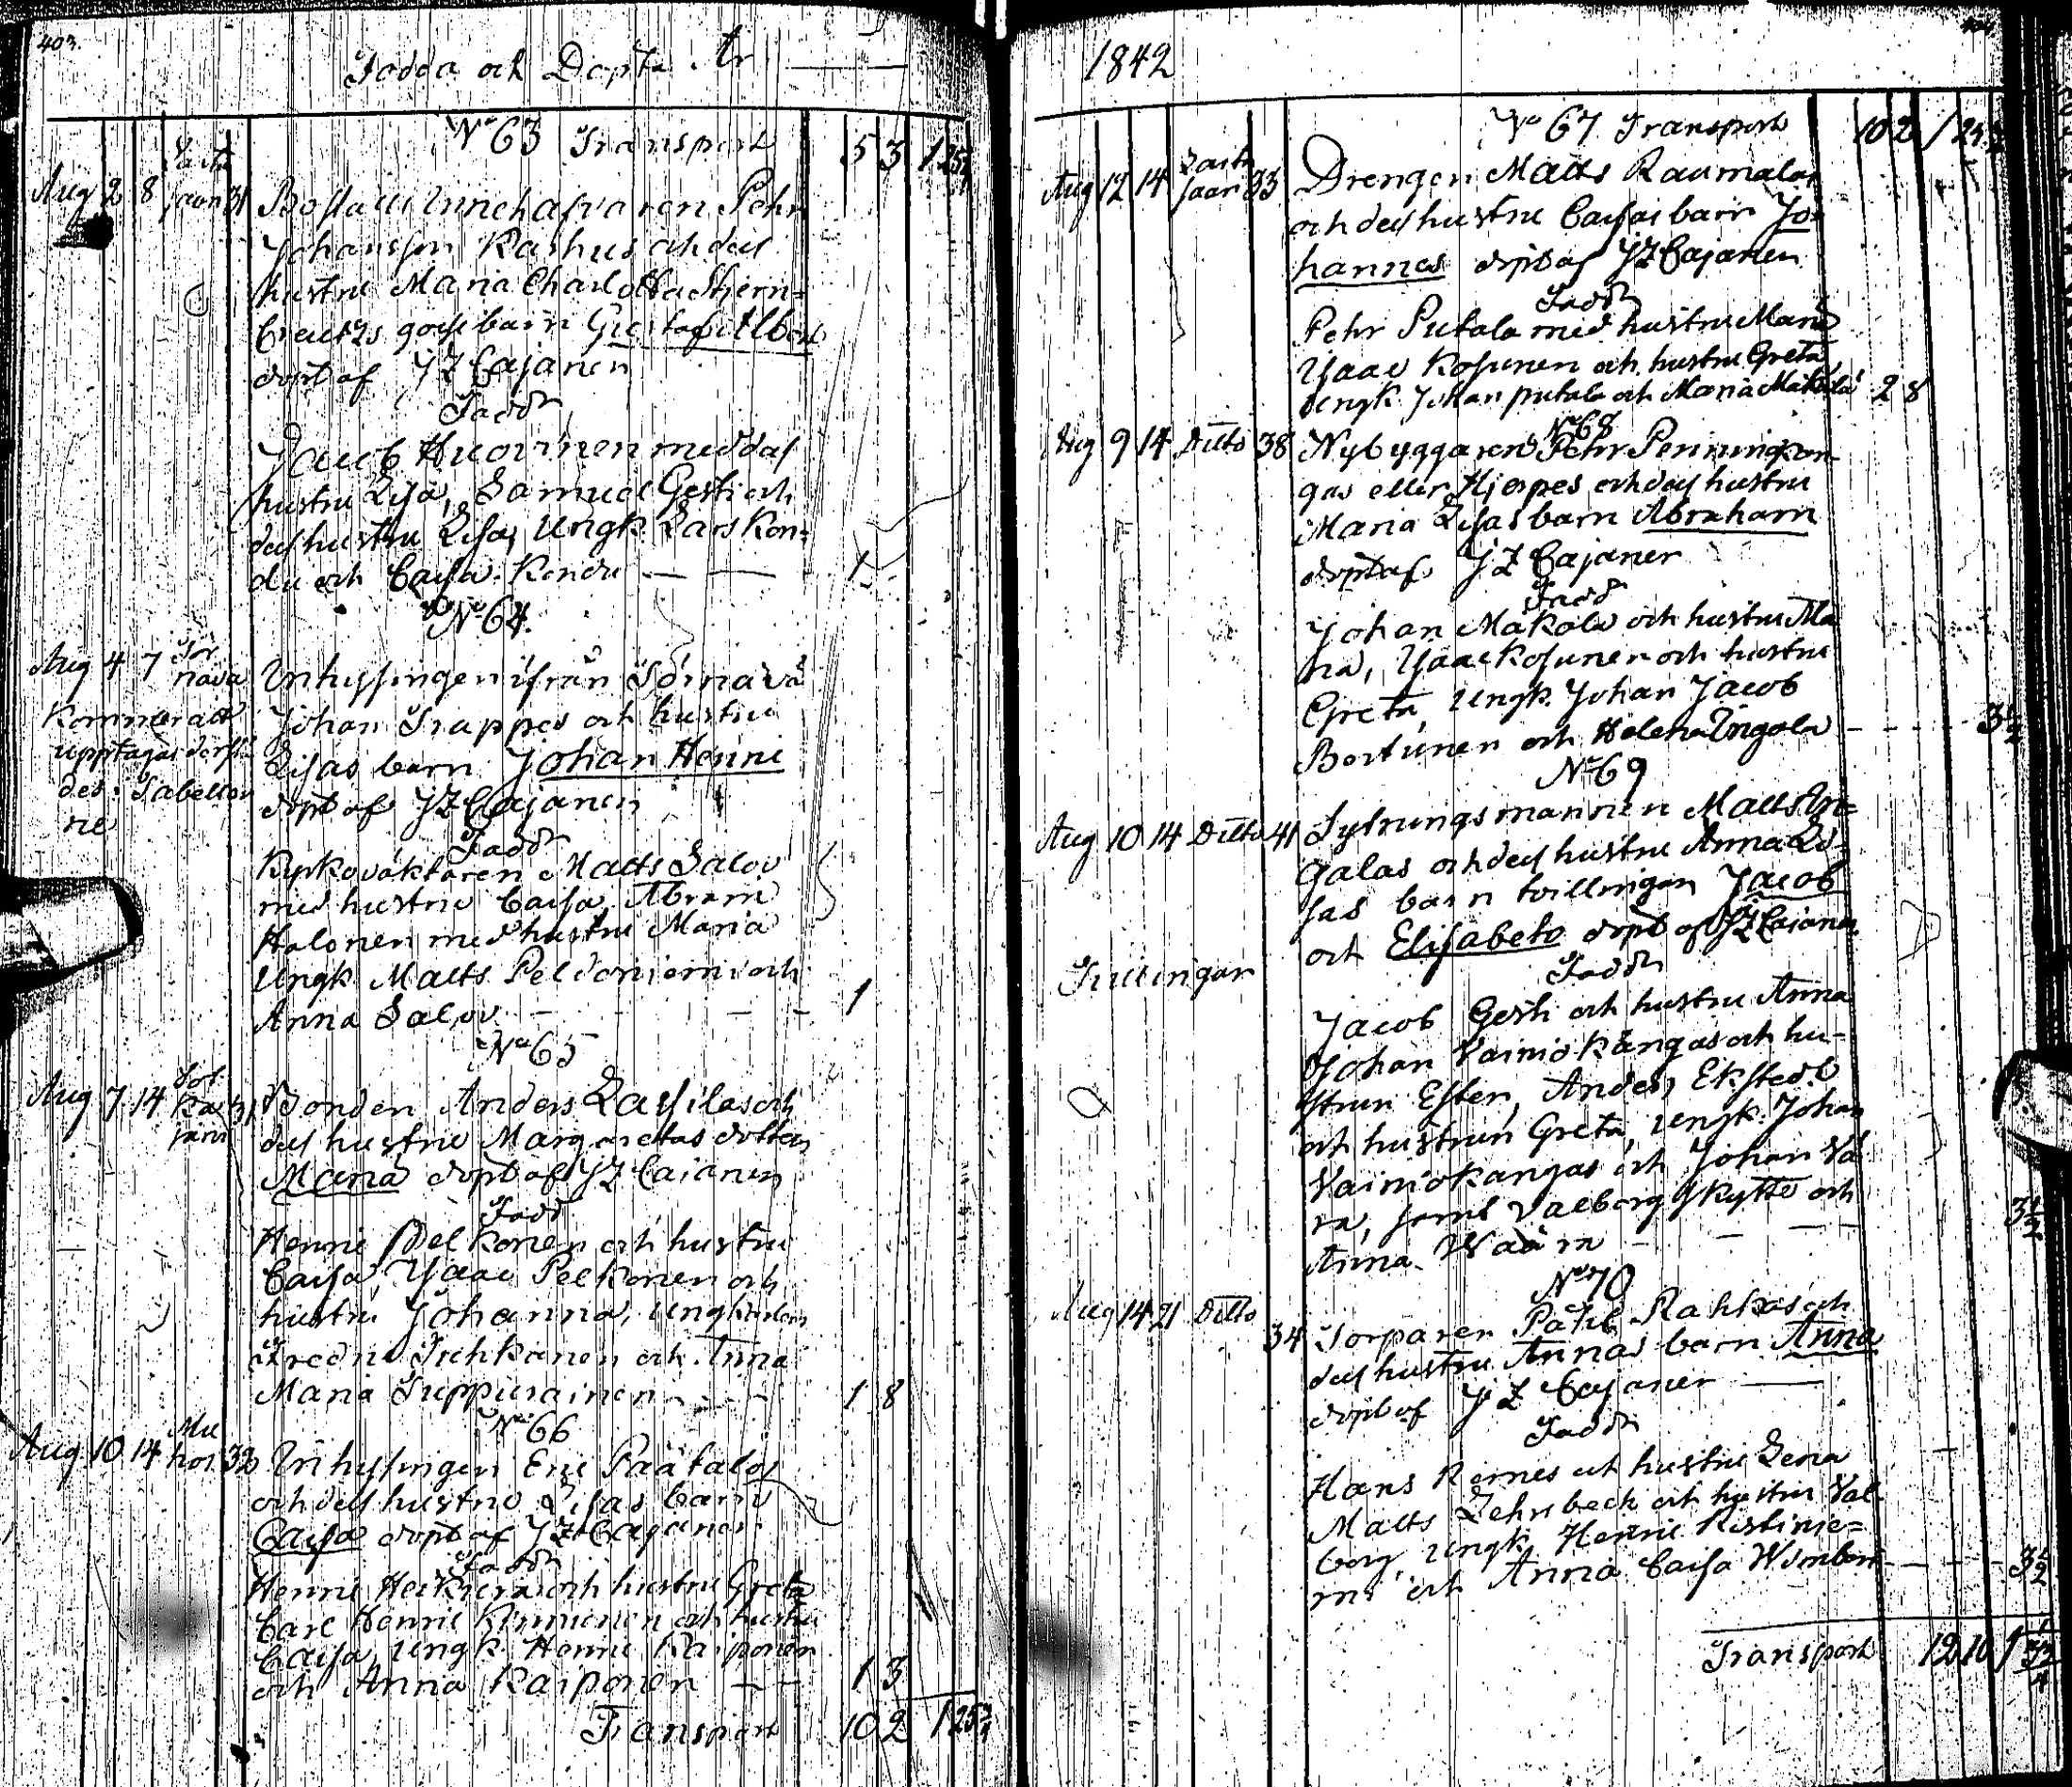 403.
Födda och Döpta År
No 63 Transport 5 3 1 25
Aug 2 8 31 Boställs innehafvaren Pehr
Johansson Kashus och dess
hustru Maria Charlotta Stjern=
Creutzs goss barn Gustaf Albert
döpt af J Z Cajanen
Fadd
Jacob Huovinen med dess
hustru Lisa, Samuel Gesti och
dess hustru Lisa, Ungk Lars Kon=
du och Caisa Kondu 1
No 64
Aug 4 7 Sotnava Inhysingen ifrån
Johan Trappes och hustru
Kommer att upptagas
Lisas barn Johan Henric
des: Tabellor
ne
döpt af J Z Cajanen
Fadd
Kyrkováktaren Matts Salov
med hustru Caisa Abram
Halonen med hustru Maria
Ungk Matts Peldoniemi och
Anna Salov 1
No 65
Aug 7 14 31 Bonden Anders Lassilas och
dess hustru Margaretas dotter
Maria döpt af J Z Cajanen
Fadd
Henric Pelkonen och hustru
Caisa, Isaac Pelkonen och
hustru Johanna, Ungkarlen
Fredric Juhkanen och Anna
Maria Tuppurainen 1 8
No 66
Aug 10 14 32 Inhysingen Eric Päätalos
och dess hustru Lisas barn
Caisa döpt af J Z Cajanen
Fadd
Henric och hustru Greta
Carl Henric Kinnunen och hustru
Caisa, Ungk. Henric Kaiponen
och Anna Kaiponen 1 3
Transport 10 2 1 25
1842
No 67 Transport 10 2 1 25
Aug 12 14 33 Drengen Matts Raumalas
och dess hustru Caisas barn Jo=
hannes döpt af J Z Cajanen
Fadd
Pehr Putala med hustru Maria
Isaac Kosunen och hustru Greta
Ungk. Johan putala och Maria Makela 2 8
No 68
Aug 9 14 Ditto 38 Nybyggaren Pehr Penningkan
gas eller Hjerpes och dess hustru
Maria Lisas barn Abraham
döpt af J Z Cajanen
Fadd
Johan Makala och hustru Ma
ria, Isaac Kosunen och hustru
Greta, Ungk. Johan Jacob
Bortinen och Helena Ingola 3 1/2
No 69
Aug 10 14 Ditto 41 Sytningsmannen Matts In=
galas och dess hustru Anna Li=
sas barn tvillingar Jacob
och Elisabeth döpt af J Z Cajanen
Fadd
Tvillingar
Jacob Gesti och hustru Anna
Johan Vainiokangas och hu=
strun Ester, Anders Ekstedt
och hustrun Greta, Ungk. Johan
Vainiokangas och Johan Va
ra, samt Valborg Skytte och
Anna Waara 3 1/2
No 70
Aug 14 21 Ditto 34 Torparen Påhl Rahkos och
dess hustru Annas barn Anna
döpt af J Z Cajaner
Fadd
Hans Remes och hustru Lena
Matts Lehnbeck och hustru Val
borg, Ungk. Henric Ristinie=
mi och Anna Caisa 3 1/2
Transport 12 10 1